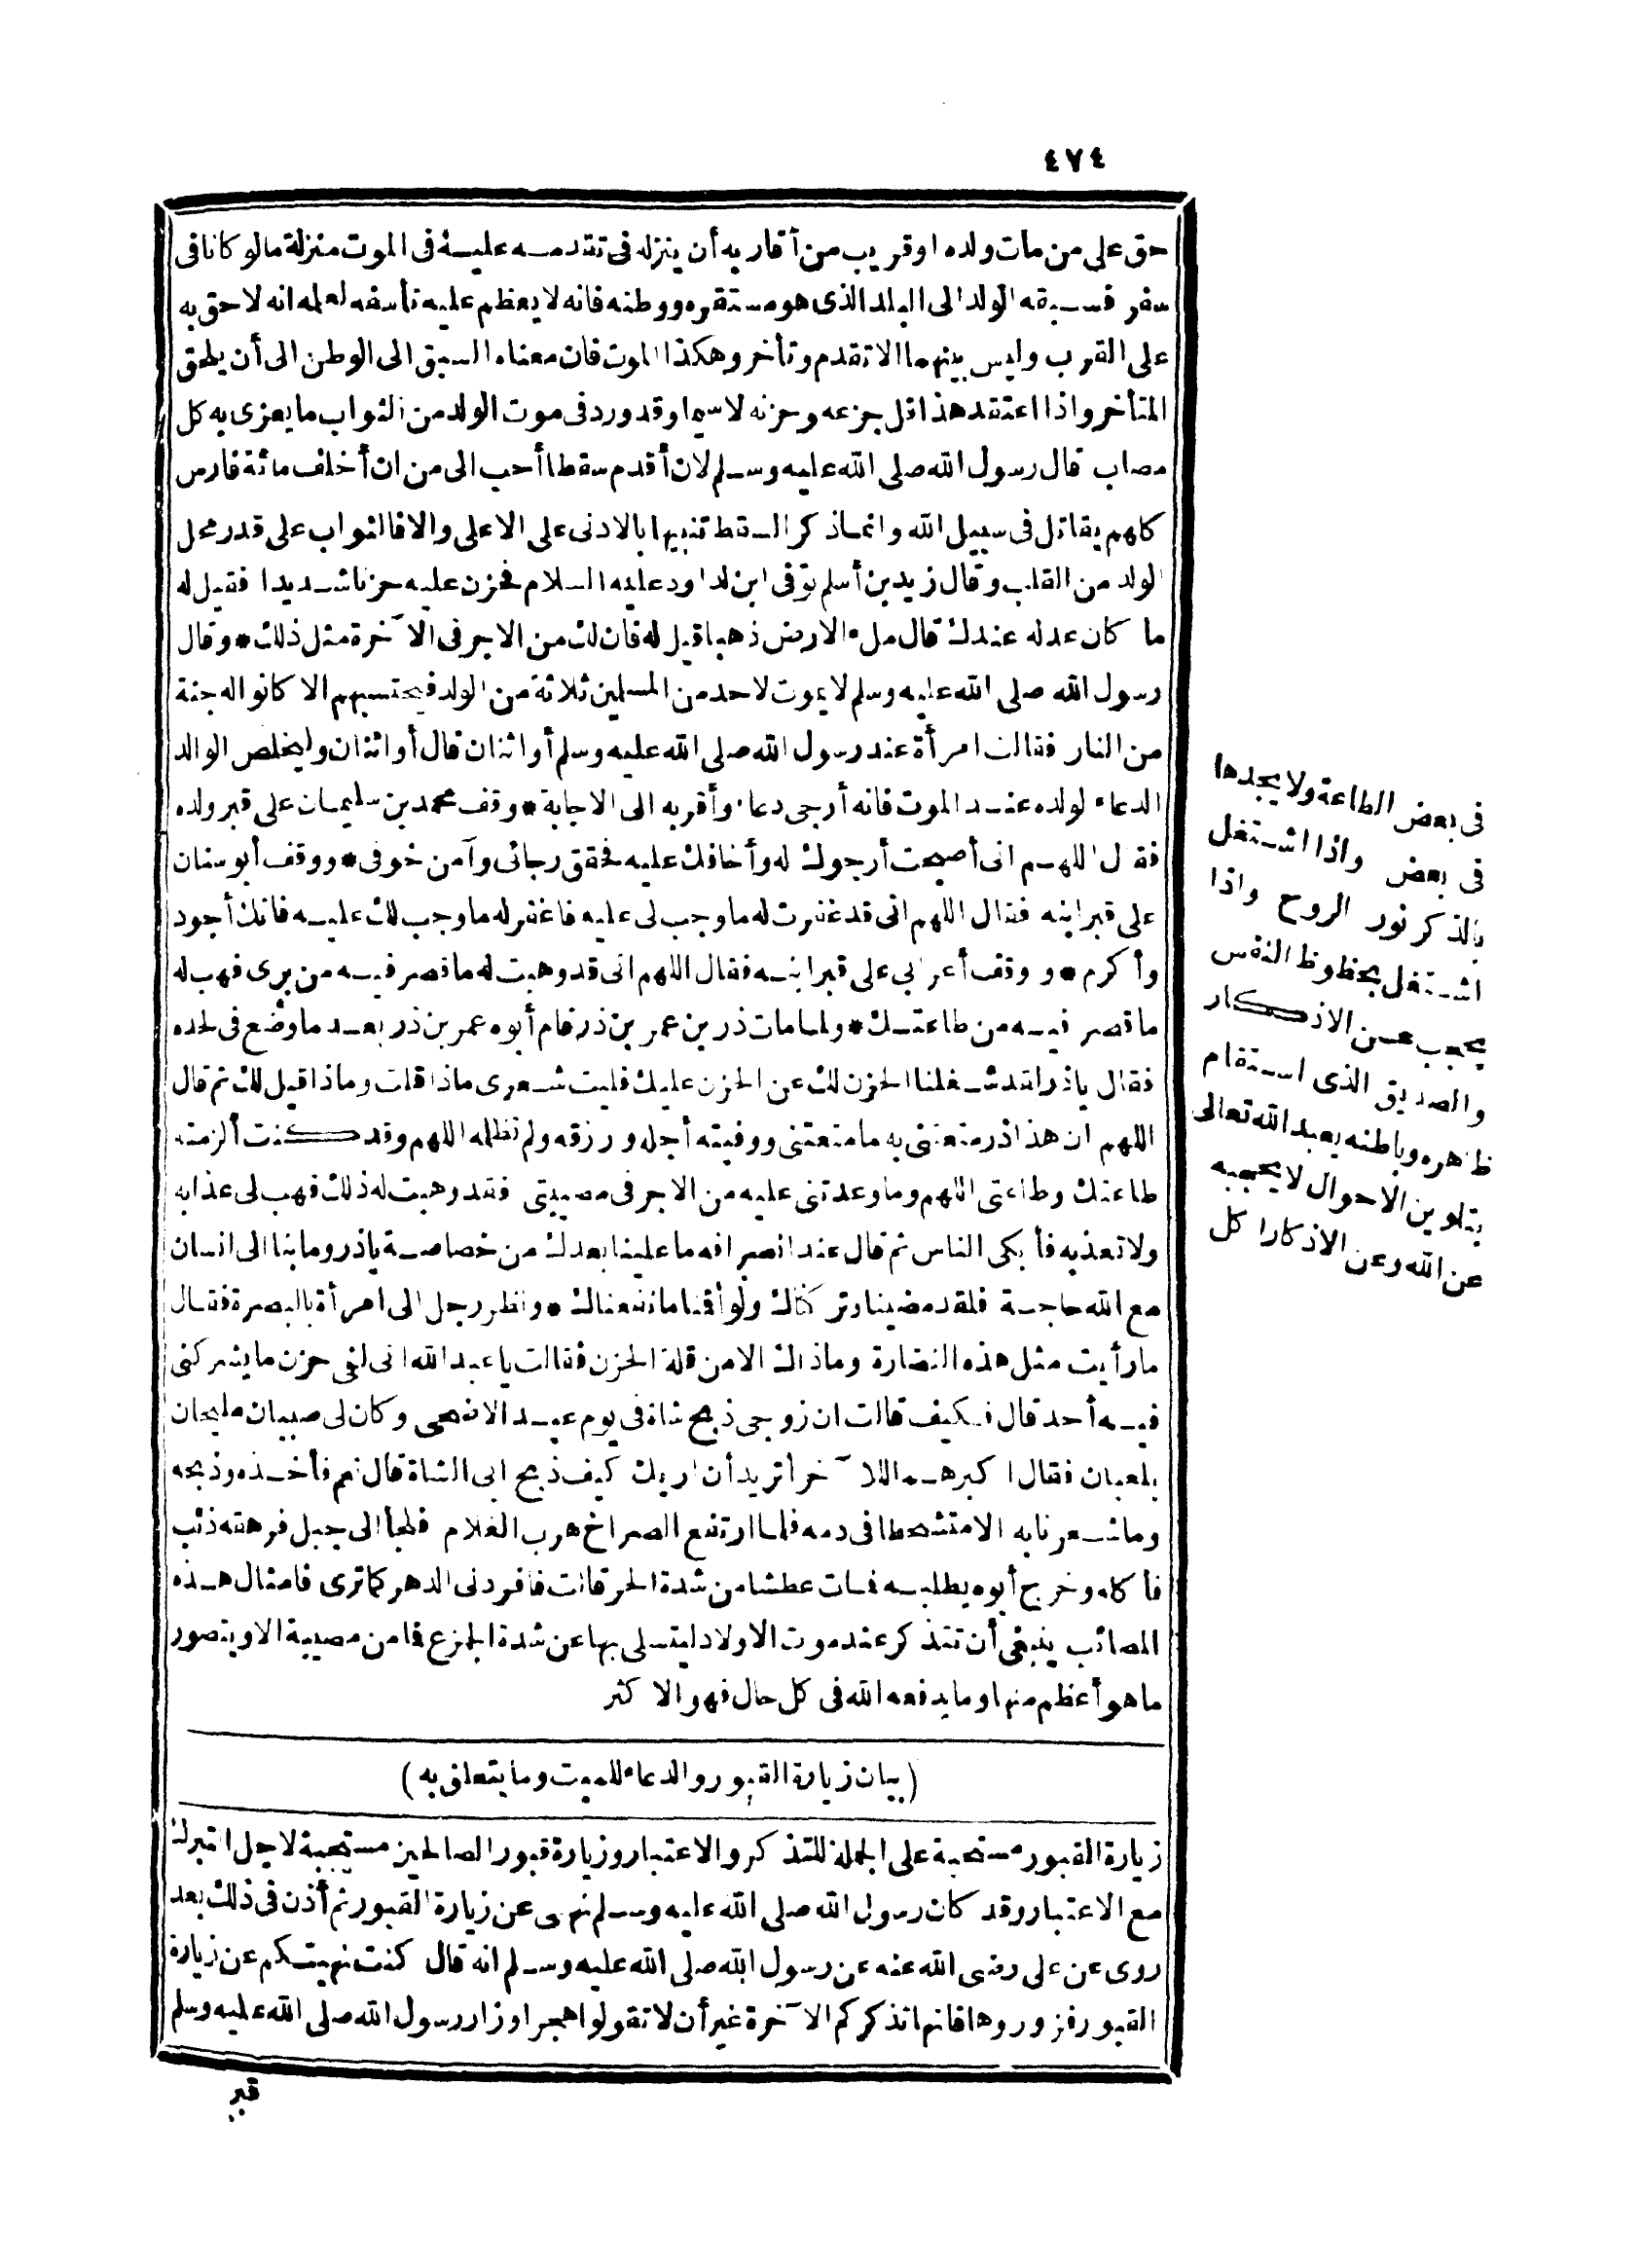 ٤٧٤
حق على من مات ولده او قريب من أقاربه أن ينزله فى تقدمه عليه فى الموت منزلة مالو كانا فى
سفر فسبقه الولد الى البلد الذى هو مستقره ووطنه فانه لا يعظم عليه تأسفه لعلمه انه لاحق به
على القرب وليس بينهما الا تقدم وتأخر وهكذا الموت فان معناه السبق الى الوطن الى أن يلحق
المتأخر واذا اعتقد هذا قل جزعه وحزنه لاسيما وقد ورد فى موت الولد من الثواب ما يعزى به كل
مصاب قال رسول الله صلى الله عليه وسلم لان أقدم سقطا أحب الى من ان أخلف مائة فارس
كلهم يقاتل فى سبيل الله وانما ذكر السقط تنبيها بالادنى على الاعلى والا فالثواب على قدر محل
الولد من القلب وقال زيد بن أسلم توفى ابن لداود عليه السلام فحزن عليه حزنا شديدا فقيل له
ما كان عدله عندك قال ملء الارض ذهبا قيل له فان لك من الاجر فى الآخرة مثل ذلك * وقال
رسول الله صلى الله عليه وسلم لا يموت لاحد من المسلمين ثلاثة من الولد فيحتسبهم الا كانوا له جنة
من النار فقالت امرأة عند رسول الله صلى الله عليه وسلم أو اثنان قال أو اثنان وليخلص الوالد
الدعاء لولده عند الموت فانه أرجى دعاء وأقربه الى الاجابة * وقف محمد بن سليمان على قبر ولده
فقال اللهم انى أصبحت أرجوك له وأخافك عليه فحقق رجائى وآمن خوفى * ووقف أبو سنان
على قبر ابنه فقال اللهم انى قد غفرت له ما وجب لى عليه فاغفر له ما وجب لك عليه فانك أجود
وأكرم * ووقف أعرابى على قبر ابنه فقال اللهم انى قد وهبت له ما قصر فيه من برى فهب له
ما قصر فيه من طاعتك * ولما مات ذر بن عمر بن ذر قام أبوه عمر بن ذر بعد ما وضع فى لحده
فقال ياذر لقد شغلنا الحزن لك عن الحزن عليك فليت شعرى ماذا قلت وماذا قيل لك ثم قال
اللهم ان هذا ذر متعتنى به ما متعتنى ووفيته أجله ورزقه ولم تظلمه اللهم وقد كنت ألزمته
طاعتك وطاعتى اللهم وما وعدتنى عليه من الاجر فى مصيبتى فقد وهبت له ذلك فهب لى عذابه
ولا تعذبه فأبكى الناس ثم قال عند انصرافه ما علينا بعدك من خصاصة ياذر وما بنا الى انسان
مع الله حاجة فلقد مضينا وتركناك ولو أقمنا ما نفعناك * ونظر رجل الى امرأة بالبصرة فقال
ما رأيت مثل هذه النضارة وما ذاك الا من قلة الحزن فقالت يا عبد الله انى لفى حزن ما يشركنى
فيه أحد قال فكيف قالت ان زوجى ذبح شاة فى يوم عيد الاضحى وكان لى صبيان مليحان
يلعبان فقال اكبرهما للآخر أتريد أن اريك كيف ذبح ابى الشاة قال نعم فأخذه وذبحه
وما شعرنا به الا متشحطا فى دمه فلما ارتفع الصراخ هرب الغلام فلجأ الى جبل فرهقه ذئب
فأكله وخرج أبوه يطلبه فمات عطشا من شدة الحر قالت فأفردنى الدهر كما ترى فامثال هذه
المصائب ينبغى أن تتذكر عند موت الاولاد ليتسلى بها عن شدة الجزع فما من مصيبة الا ويتصور
ما هو أعظم منها وما يدفعه الله فى كل حال فهو الاكثر
(بيان زيارة القبور والدعاء للميت وما يتعلق به)
زيارة القبور مستحبة على الجملة للتذكر والاعتبار وزيارة قبور الصالحين مستحبة لاجل التبرك
مع الاعتبار وقد كان رسول الله صلى الله عليه وسلم نهى عن زيارة القبور ثم أذن فى ذلك بعد
روى عن على رضى الله عنه عن رسول الله صلى الله عليه وسلم انه قال كنت نهيتكم عن زيارة
القبور فزوروها فانها تذكركم الآخرة غير أن لا تقولوا هجرا وزار رسول الله صلى الله عليه وسلم
قبر
فى بعض الطاعة ولا يجدها
فى بعض واذا اشتغل
بالذكر نور الروح واذا
اشتغل بحظوظ النفس
يحجب عن الاذكار
والصديق الذى استقام
ظاهره وباطنه يعبد الله تعالى
بتلوين الاحوال لا يحجبه
عن الله وعن الاذكار اكل